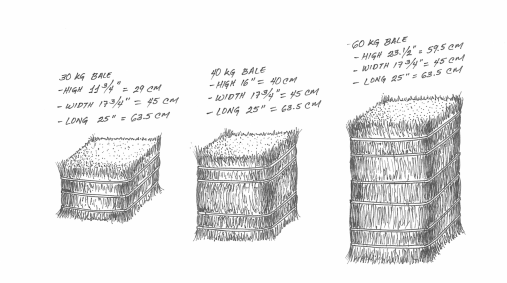 30 KG BALE
- HIGH 11 3/4" = 29 CM
- WIDTH 17 3/4" = 45 CM
- LONG 25" = 63.5 CM
40 KG BALE
- HIGH 16" = 40 CM
- WIDTH 17 3/4" = 45 CM
- LONG 25" = 63.5 CM
- 60 KG BALE
- HIGH 23.1/2" = 59.5 CM
- WIDTH 17 3/4" = 45 CM
- LONG 25" = 63.5 CM